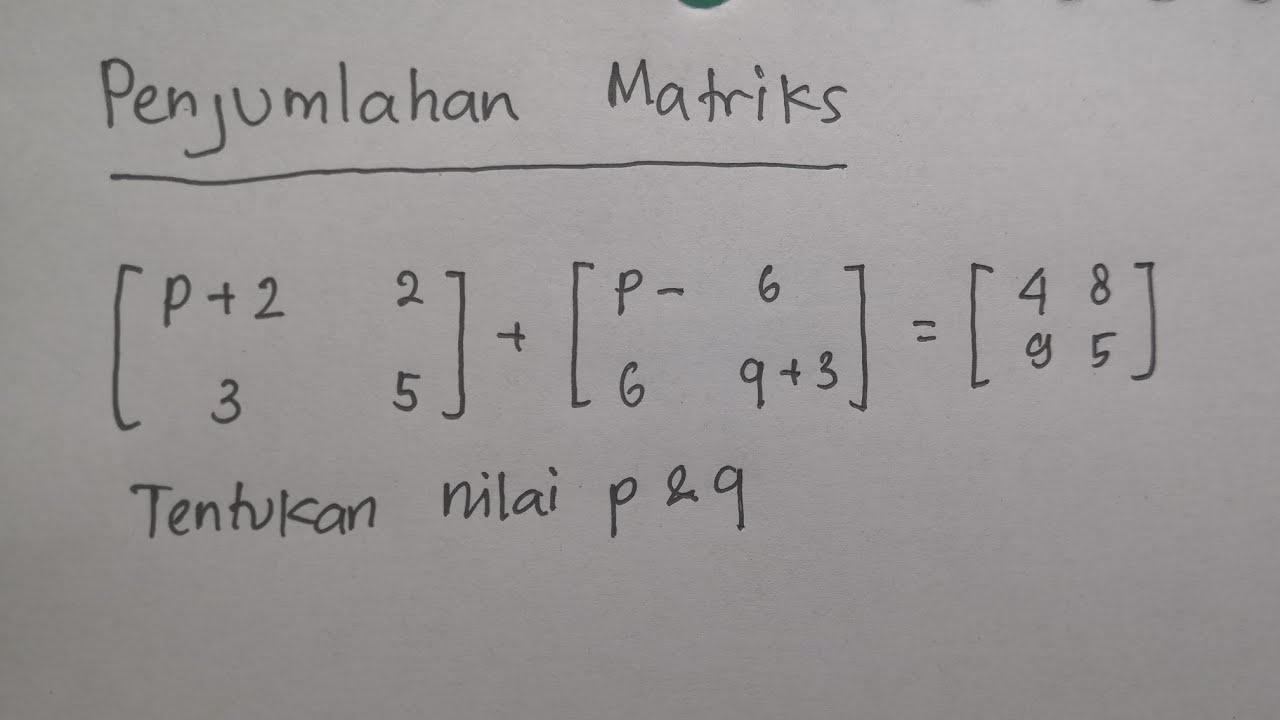 Penjumlahan Matriks
[ p + 2 2 ] + [ p - 6 ] = [ 4 8 ]
[ 3 5 ] [ 6 q + 3 ] [ 9 5 ]
Tentukan nilai p & q